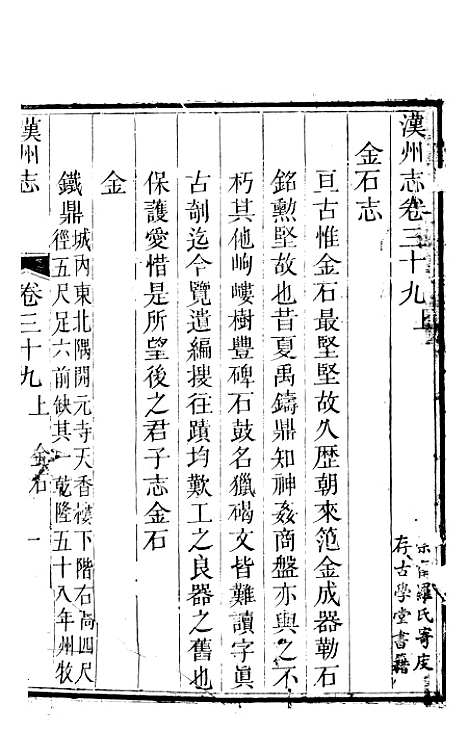 漢州志卷三十九上
金石志
亘古惟金石最堅堅故久歷朝來范金成器勒石
銘勲堅故也昔夏禹鑄鼎知神姦商盤亦與之不
朽其他岣嶁樹豐碑石鼓名獵碣文皆難讀字眞
古剞迄今覽遺編搜往蹟均歎工之良器之舊也
保護愛惜是所望後之君子志金石
金
鐵鼎城內東北隅開元寺天香樓下階右高四尺
徑五尺足六前缺其一乾隆五十八年州牧
漢州志
卷三十九上
金石
一
羅氏寄庋
存古學堂書籍